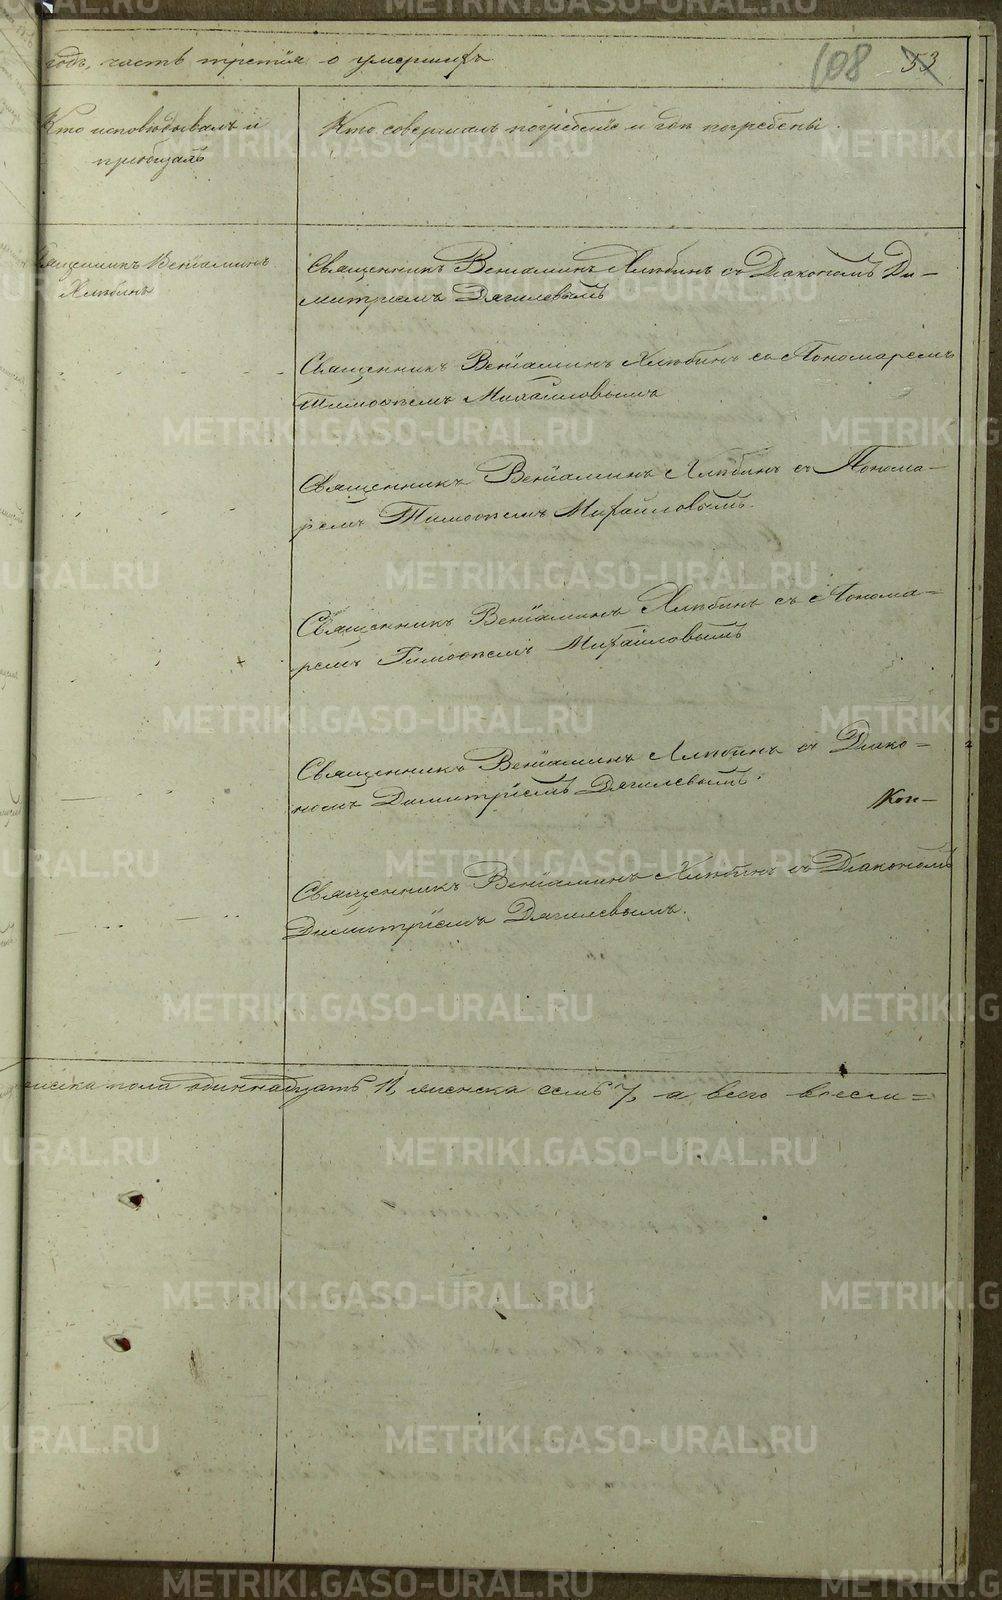 годъ, часть третія о умершихъ
108 53
Кто исповѣдывалъ и
пріобщалъ
Кто совершалъ погребеніе и гдѣ погребены
Священникъ Веніаминъ
Хлѣбинъ
Священникъ Веніаминъ Хлѣбинъ съ Діакономъ Ди-
митріемъ Дягилевымъ
Священникъ Веніаминъ Хлѣбинъ съ Пономаремъ
Тимоѳеемъ Михайловымъ
Священникъ Веніаминъ Хлѣбинъ съ Понома-
ремъ Тимоѳеемъ Михайловымъ.
Священникъ Веніаминъ Хлѣбинъ съ Понома-
ремъ Тимоѳеемъ Михайловымъ
Священникъ Веніаминъ Хлѣбинъ съ Діако-
номъ Димитріемъ Дягилевымъ.
Кон-
Священникъ Веніаминъ Хлѣбинъ съ Діакономъ
Димитріемъ Дягилевымъ.
пола одиннадцать 11, женска семь 7, а всего восем=
METRIKI.GASO-URAL.RU